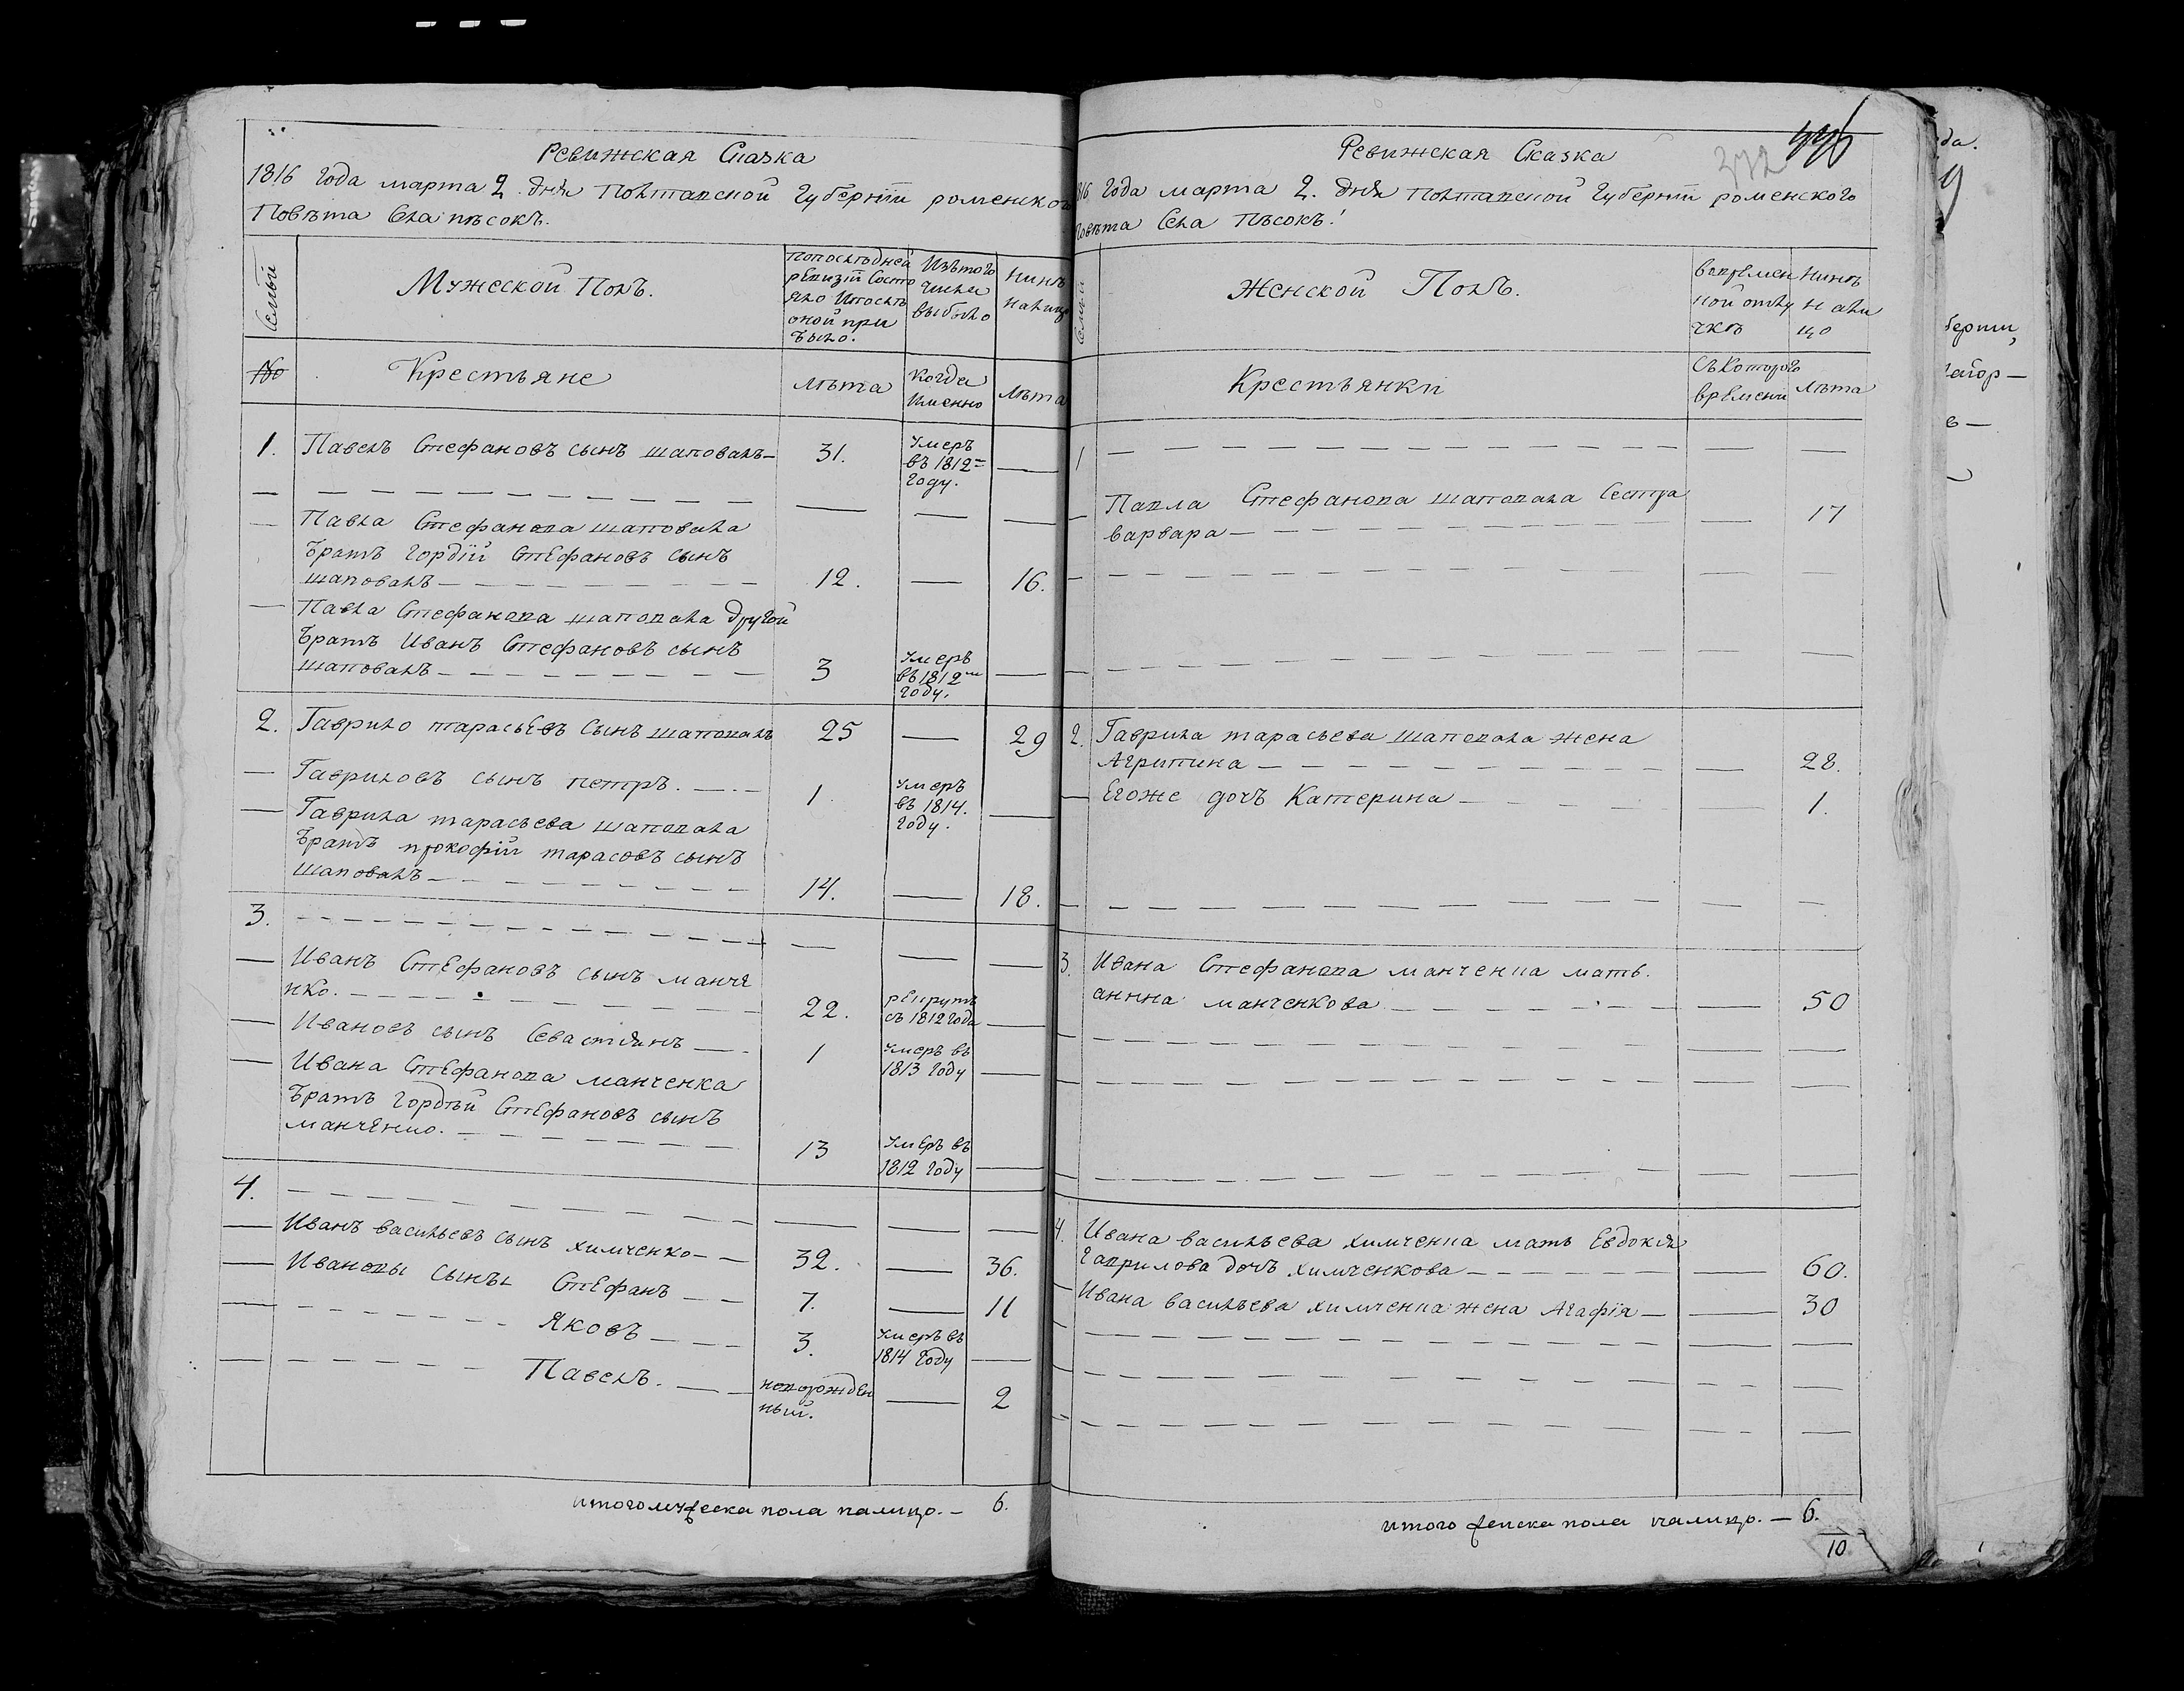 Ревижская Сказка
1816 года марта 2. дня Полтавской Губернїи роменского
Повѣта Села пѣсокъ.
Семьи
Мужеской Полъ.
Попослѣдней
ревизїи Состо
яло Ипослѣ
оной при
было.
Изътого
числа
выбыло
Нинѣ
налицо
№
Крестьяне
лѣта
когда
Именно
лѣта
1. Павелъ Стефановъ сынъ шаповалъ — 31.
Умеръ
въ 1812=
году. —
Павла Стефанова шаповала
братъ гордїй Стефановъ сынъ
шаповалъ — 12. — 16.
Павла Стефанова шаповала другой
братъ Иванъ Стефановъ сынъ
шаповалъ — 3
Умеръ
въ 1812м
году. —
2. Гаврило тарасьевъ Сынъ шаповалъ 25 — 29
Гавриловъ сынъ петръ. — 1.
Умеръ
въ 1814.
году. —
Гаврила тарасьева шаповала
братъ прокофїй тарасовъ сынъ
шаповалъ — 14. — 18.
3. —
Иванъ Стефановъ сынъ манче
нко. — 22.
рекрутъ
съ 1812 года —
Ивановъ сынъ Севастиянъ — 1
Умеръ въ
1813 году —
Ивана Стефанова манченка
братъ гордѣй Стефановъ сынъ
манченко. — 13
Умеръ въ
1812 году —
4. —
Иванъ васильевъ сынъ химченко — 32. — 36.
Ивановы сынъы Стефанъ — 7. — 11
Яковъ — 3.
Умеръ въ
1814 году —
Павелъ. —
новорожден
ный. — 2
итого мужеска пола налицо. — 6.
372
Ревижская Сказка
1816 года марта 2. дня Полтавской Губернїи роменского
Повѣта Села Пѣсокъ.
Семьи
Женской Полъ.
вовремен
ной отлу
чкѣ
Нинѣ
н али
цо
Крестьянки
Съкоторого
времени
лѣта
1 —
Павла Стефанова шаповала Сестра
варвара — 17
2. Гаврила тарасьева шаповала жена
Агрипина — 28.
Егоже дочъ Катерина — 1.
3. Ивана Стефанова манченка мать.
анна манченкова — 50
4. Ивана васильева химченка мать Евдокия
гаврилова дочъ химченкова — 60.
Ивана васильева химченка жена Агафїя — 30
итого женска пола налицо. — 6.
10
да.
берни,